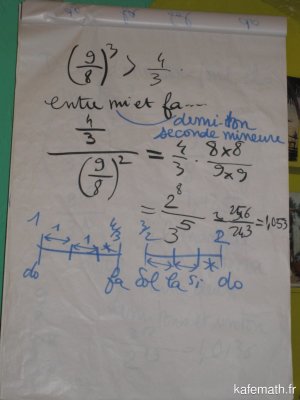 (9/8)³ > 4/3
entre mi et fa...
demi-ton
seconde mineure
(4/3) / (9/8)² = 4/3 · (8×8)/(9×9)
= 2⁸/3⁵ = 256/243 = 1,053
1 4/3 3/2 2
1 1 *
*
do fa Sol la si do
kafemath.fr